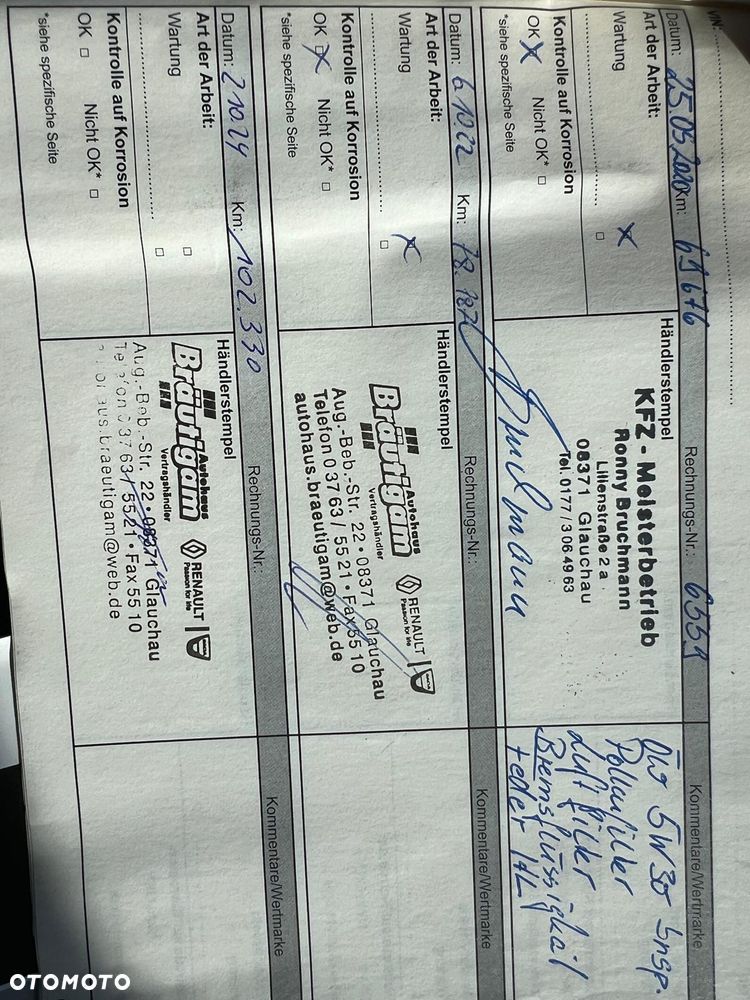 VIN:
Datum: 25.05.2020 Km: 69 676 Rechnungs-Nr.: 6559 Kommentare/Wertmarke
Art der Arbeit:
Wartung
Kontrolle auf Korrosion
OK Nicht OK*
*siehe spezifische Seite
Händlerstempel
KFZ - Meisterbetrieb
Ronny Bruchmann
Lilienstraße 2 a
08371 Glauchau
Tel. 0177 / 3 06 49 63
Bruchmann
5W30 Insp.
Pollenfilder
Luft filder
Bremsflüssigkait
Datum: 6 10 22 Km: 78.187 Rechnungs-Nr.: Kommentare/Wertmarke
Art der Arbeit:
Wartung
Kontrolle auf Korrosion
OK Nicht OK*
*siehe spezifische Seite
Händlerstempel
Autohaus
Bräutigam
Vertragshändler
RENAULT
Passion for life
DACIA
Aug.-Beb.-Str. 22 • 08371 Glauchau
Telefon 0 37 63 / 55 21 • Fax 55 10
autohaus.braeutigam@web.de
Datum: 2 10 24 Km: 102.330 Rechnungs-Nr.: Kommentare/Wertmarke
Art der Arbeit:
Wartung
Kontrolle auf Korrosion
OK Nicht OK*
*siehe spezifische Seite
Händlerstempel
Autohaus
Bräutigam
Vertragshändler
RENAULT
Passion for life
DACIA
Aug.-Beb.-Str. 22 • 08371 Glauchau
Telefon 0 37 63 / 55 21 • Fax 55 10
braeutigam@web.de
OTOMOTO